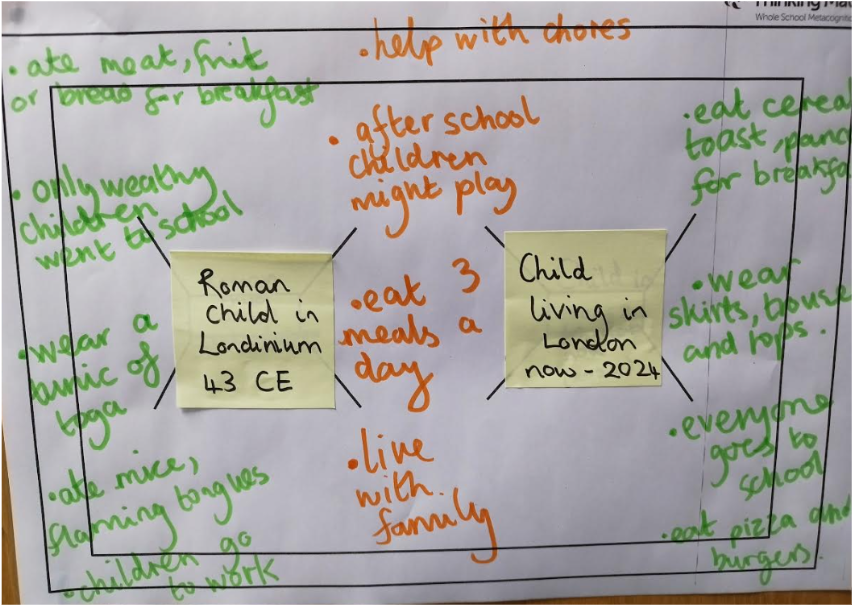 Thinking Ma
Whole School Metacognitio
• help with chores
• ate meat, fruit
or bread for breakfast
• after school
children
might play
• eat cereal
toast, panc
for breakfa
• only weathy
children
went to school
Roman
Child in
Londinium
43 CE
• eat 3
meals a
day
Child
living in
London
now - 2024
• wear
skirts, trouse
and tops.
• wear a
tunic of
toga
• live
with
family
• everyone
goes to
school
• ate mice,
flaming tongues
• children go
to work
• eat pizza and
burgers.